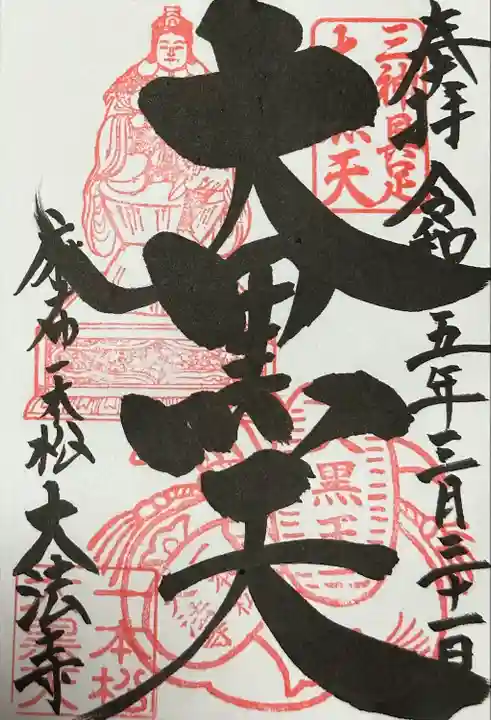 奉拝 令和五年三月三十一日
大黒天
麻布一本松 大法寺
三神具足
大黒天
大黒天
一本松